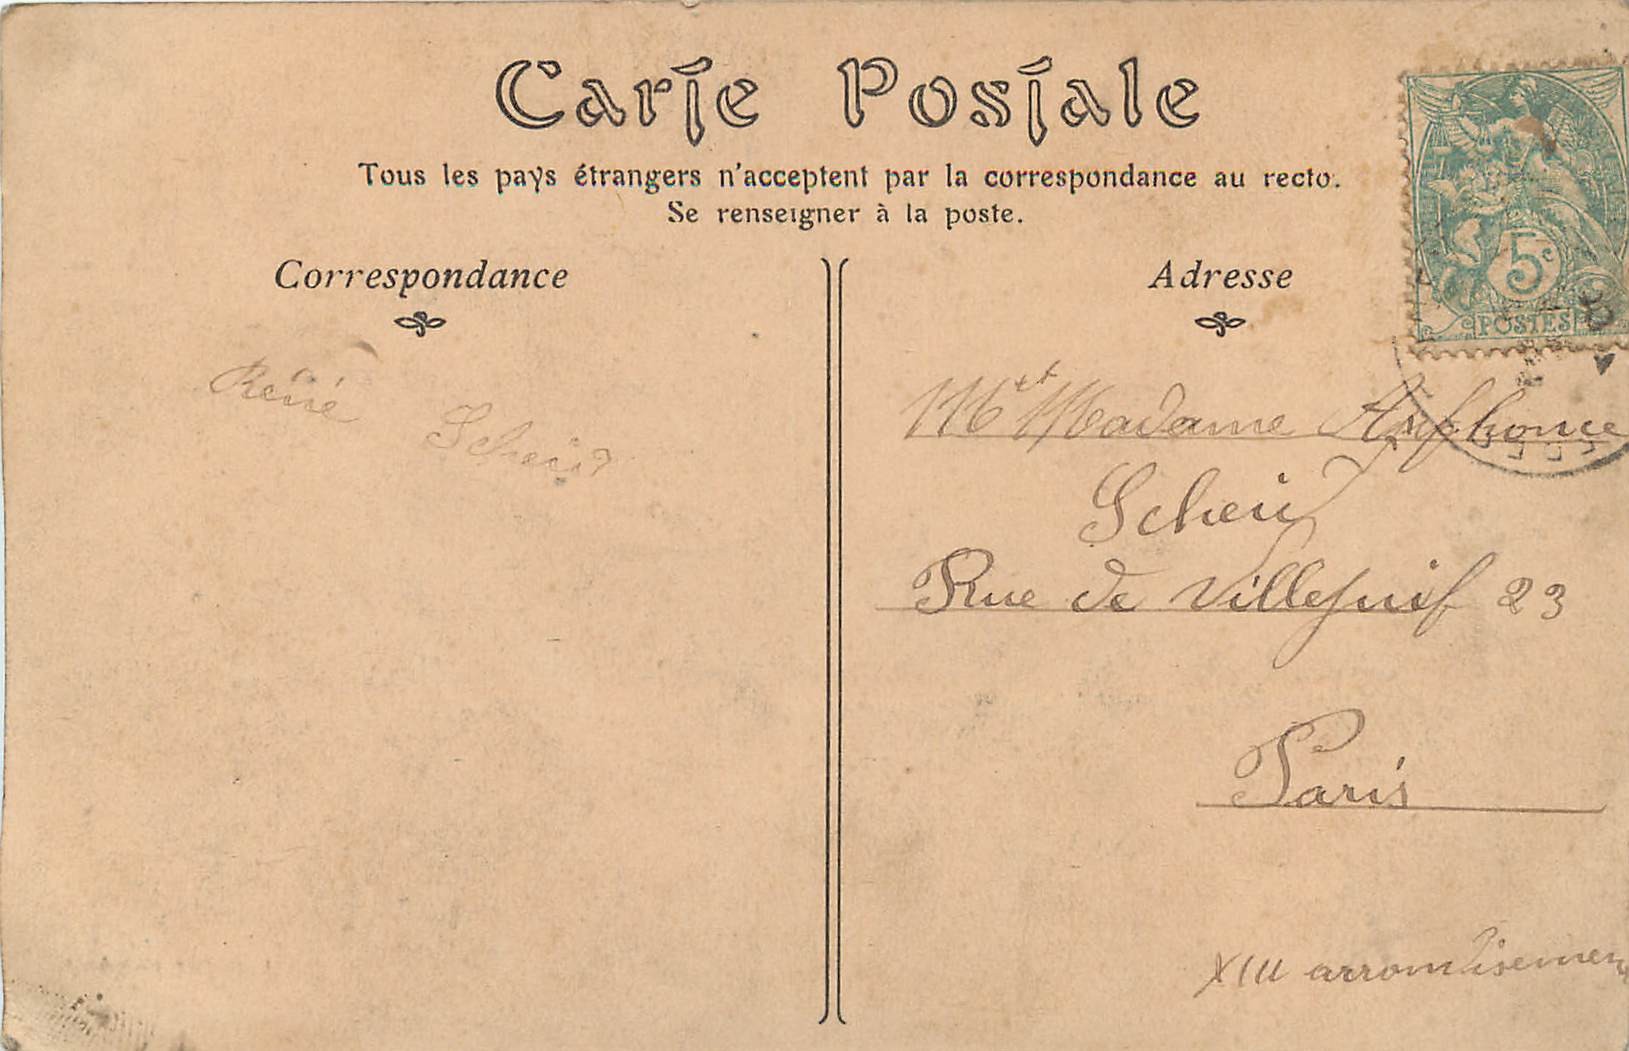 Carte Postale
Tous les pays étrangers n'acceptent par la correspondance au recto.
Se renseigner à la poste.
Correspondance
Adresse
5c
POSTES
René
M et Madame Alphonce
Rue de Villejuif 23
Paris
XIII arrondisement